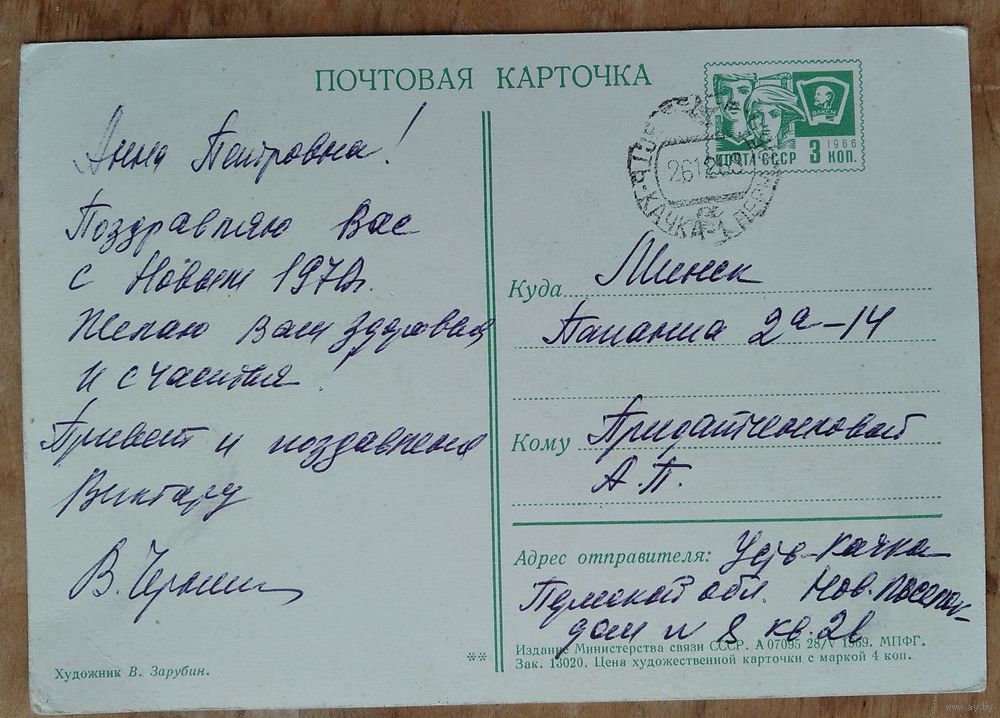 ПОЧТОВАЯ КАРТОЧКА
1966
ПОЧТА СССР 3 КОП.
ВЛКСМ
Анна Петровна!
Поздравляю Вас
с Новым 1970г.
Желаю Вам здоровья
и счастья!
Привет и поздравления
Виктару
В.
Куда Минск
Папанина 2а-14
Кому Придатченковой
А.П.
Адрес отправителя: Усть-Качка
Пермской обл. Нов. поселок
дом № 8 кв. 2
Издание Министерства связи СССР. А 07095 28/V 1969. МПФГ.
Зак. 13020. Цена художественной карточки с маркой 4 коп.
**
Художник В. Зарубин.
www.ay.by